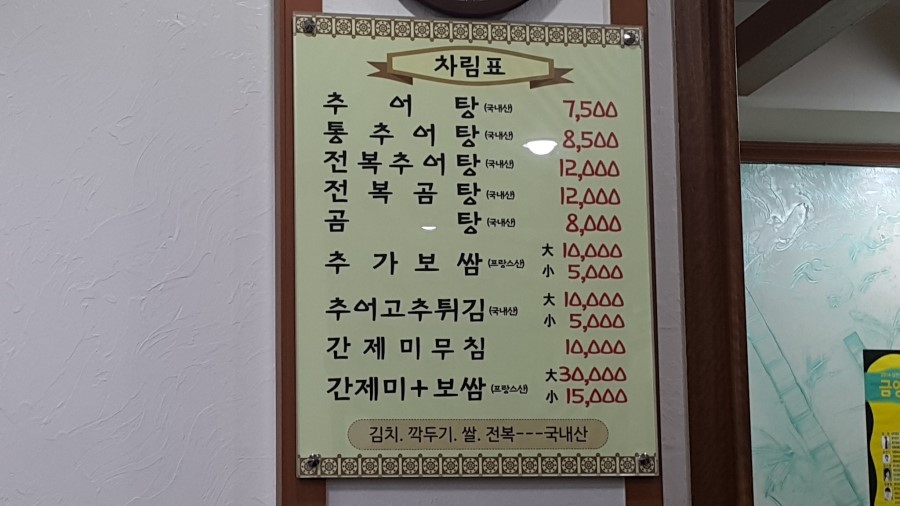 차림표
추어탕(국내산) 7,500
통추어탕(국내산) 8,500
전복추어탕(국내산) 12,000
전복곰탕(국내산) 12,000
곰탕(국내산) 8,000
추가보쌈(프랑스산) 大 10,000
小 5,000
추어고추튀김(국내산) 大 10,000
小 5,000
간제미무침 10,000
간제미+보쌈(프랑스산) 大 30,000
小 15,000
김치. 깍두기. 쌀. 전복---국내산